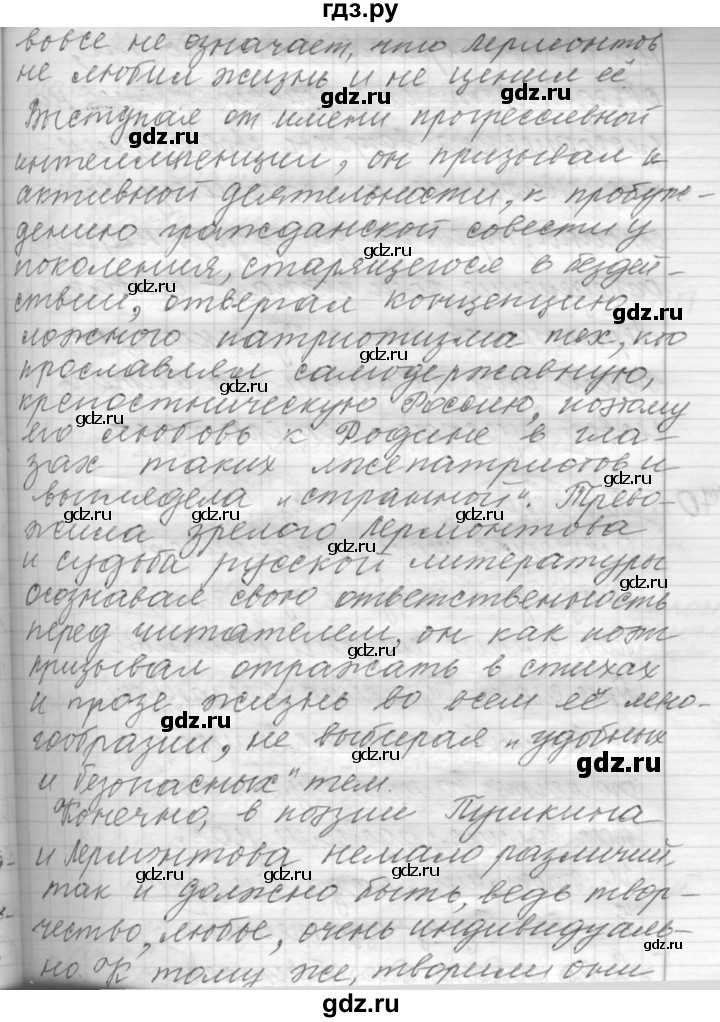 гдз.ру
вовсе не означает, что Лермонтов
не любил жизнь и не ценил её
Выступая от имени прогрессивной
интеллигенции, он призывал к
активной деятельности, к пробуж-
дению гражданской совести у
поколения, старящегося в бездей-
ствии, отвергал концепцию
ложного патриотизма тех, кто
прославлял самодержавную,
крепостническую Россию, поэтому
его любовь к Родине в гла-
зах таких лжепатриотов и
выглядела "странной". Трево-
жила зрелого Лермонтова
и судьба русской литературы
Осознавал свою ответственность
перед читателем, он как поэт
призывал отражать в стихах
и прозе жизнь во всем её мно-
гообразии, не выбирая "удобных
и безопасных" тем.
Конечно, в поэзии Пушкина
и Лермонтова немало различий,
так и должно быть, ведь твор-
чество, любое, очень индивидуаль-
но. К тому же, творили они
gdz.ru